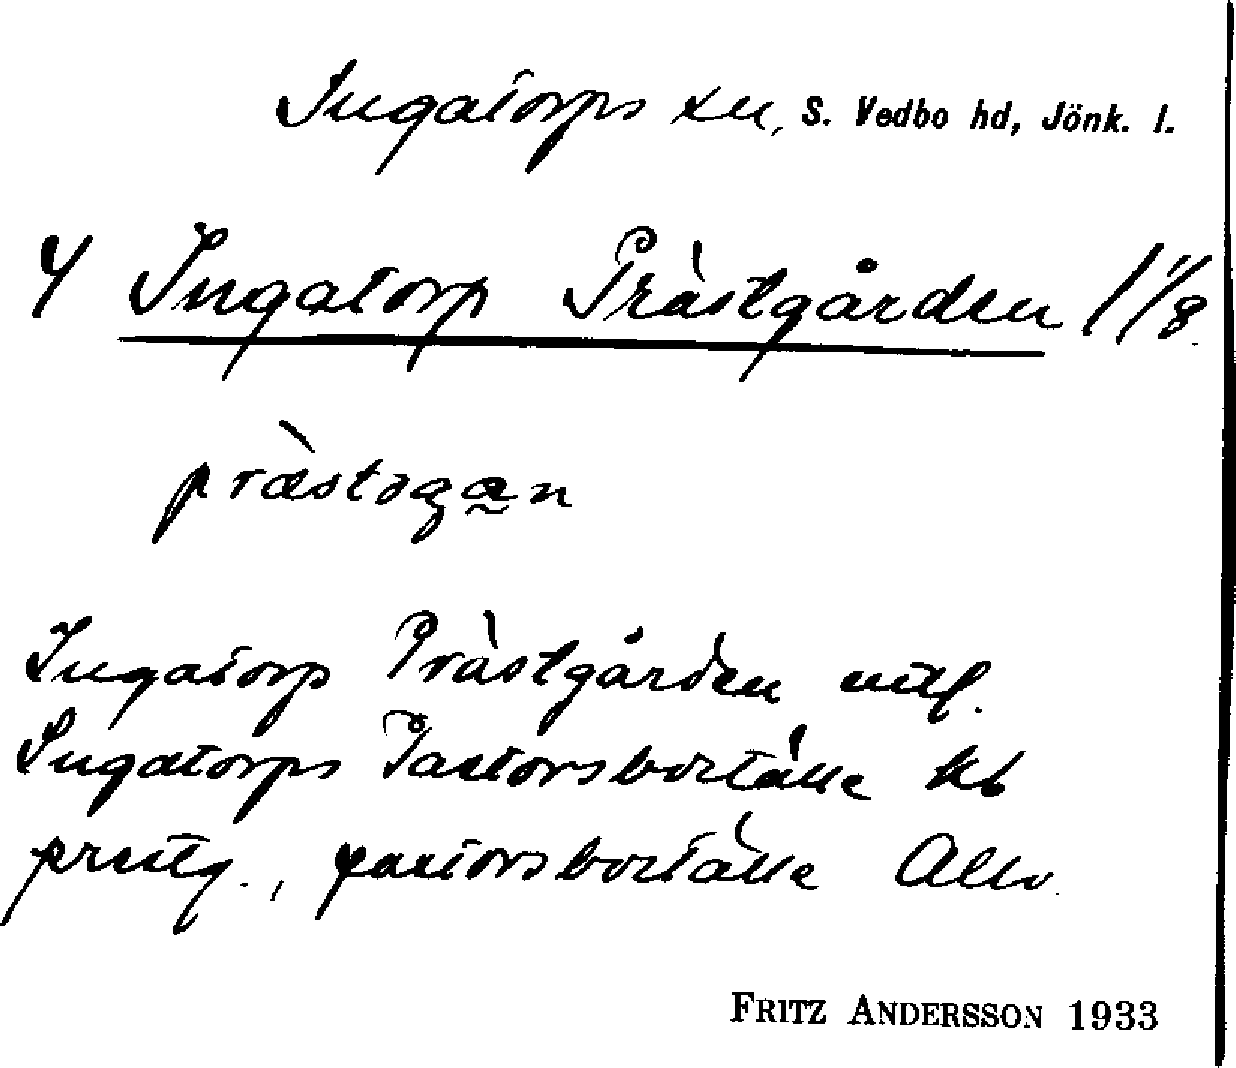 Ingatorps sn, S. Vedbo hd, Jönk. l.
4 Ingatorp Prästgården 1 1/8
præstogan
Ingatorp Prästgården
Ingatorps Pastorsboställe kb
prestg., pastorsboställe Allv
FRITZ ANDERSSON 1933